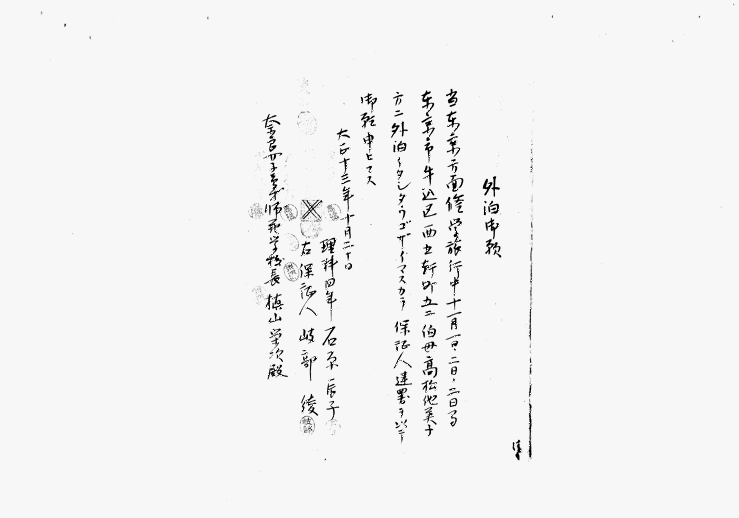 外泊御願
当東京方面修学旅行中十一月一日、二日、三日間
東京市牛込区西五軒町五二伯母高松他美子
方ニ外泊イタシタウゴザイマスカラ保証人連署ヲ以テ
御願申上マス
大正十三年十月二十日
理科四年 石原辰子
右保証人 岐部 綾
奈良女子高等師範学校長 槙山栄次殿